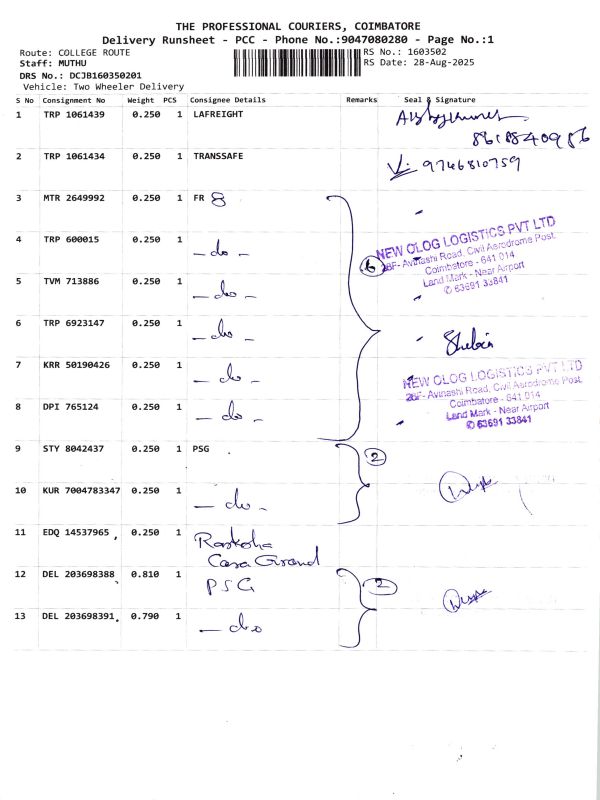 THE PROFESSIONAL COURIERS, COIMBATORE
Delivery Runsheet - PCC - Phone No.:9047080280 - Page No.:1
Route: COLLEGE ROUTE
RS No.: 1603502
Staff: MUTHU
RS Date: 28-Aug-2025
DRS No.: DCJB160350201
Vehicle: Two Wheeler Delivery
S No Consignment No Weight PCS Consignee Details Remarks Seal & Signature
1 TRP 1061439 0.250 1 LAFREIGHT
8618840986
2 TRP 1061434 0.250 1 TRANSSAFE
9746810759
3 MTR 2649992 0.250 1 FR 8
4 TRP 600015 0.250 1 - do -
6
NEW OLOG LOGISTICS PVT LTD
28F- Avinashi Road, Civil Aerodrome Post.
Coimbatore - 641 014
Land Mark - Near Airport
✆ 63691 33841
5 TVM 713886 0.250 1 - do -
6 TRP 6923147 0.250 1 - do -
Shebin
7 KRR 50190426 0.250 1 - do -
NEW OLOG LOGISTICS PVT LTD
28F- Avinashi Road, Civil Aerodrome Post.
Coimbatore - 641 014
Land Mark - Near Airport
✆ 63691 33841
8 DPI 765124 0.250 1 - do -
9 STY 8042437 0.250 1 PSG
2
10 KUR 7004783347 0.250 1 - do -
11 EDQ 14537965 0.250 1
Casa Grand
12 DEL 203698388 0.810 1 PSG
2
13 DEL 203698391 0.790 1 - do